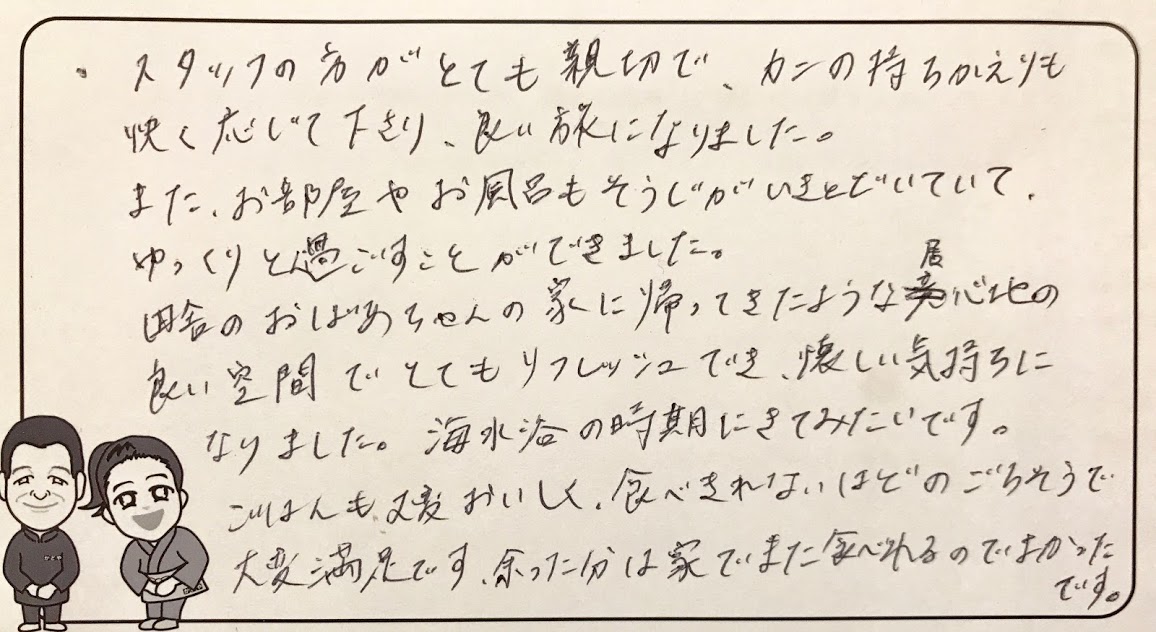 ・スタッフの方がとても親切で、カニの持ちかえりも
快く応じて下さり、良い旅になりました。
また、お部屋やお風呂もそうじがいきとどいていて、
ゆっくりと過ごすことができました。
田舎のおばあちゃんの家に帰ってきたような居心地の
良い空間でとてもリフレッシュでき、懐しい気持ちに
なりました。海水浴の時期にきてみたいです。
ごはんも大変おいしく、食べきれないほどのごちそうで
大変満足です、余った分は家でまた食べれるのでよかった
です。